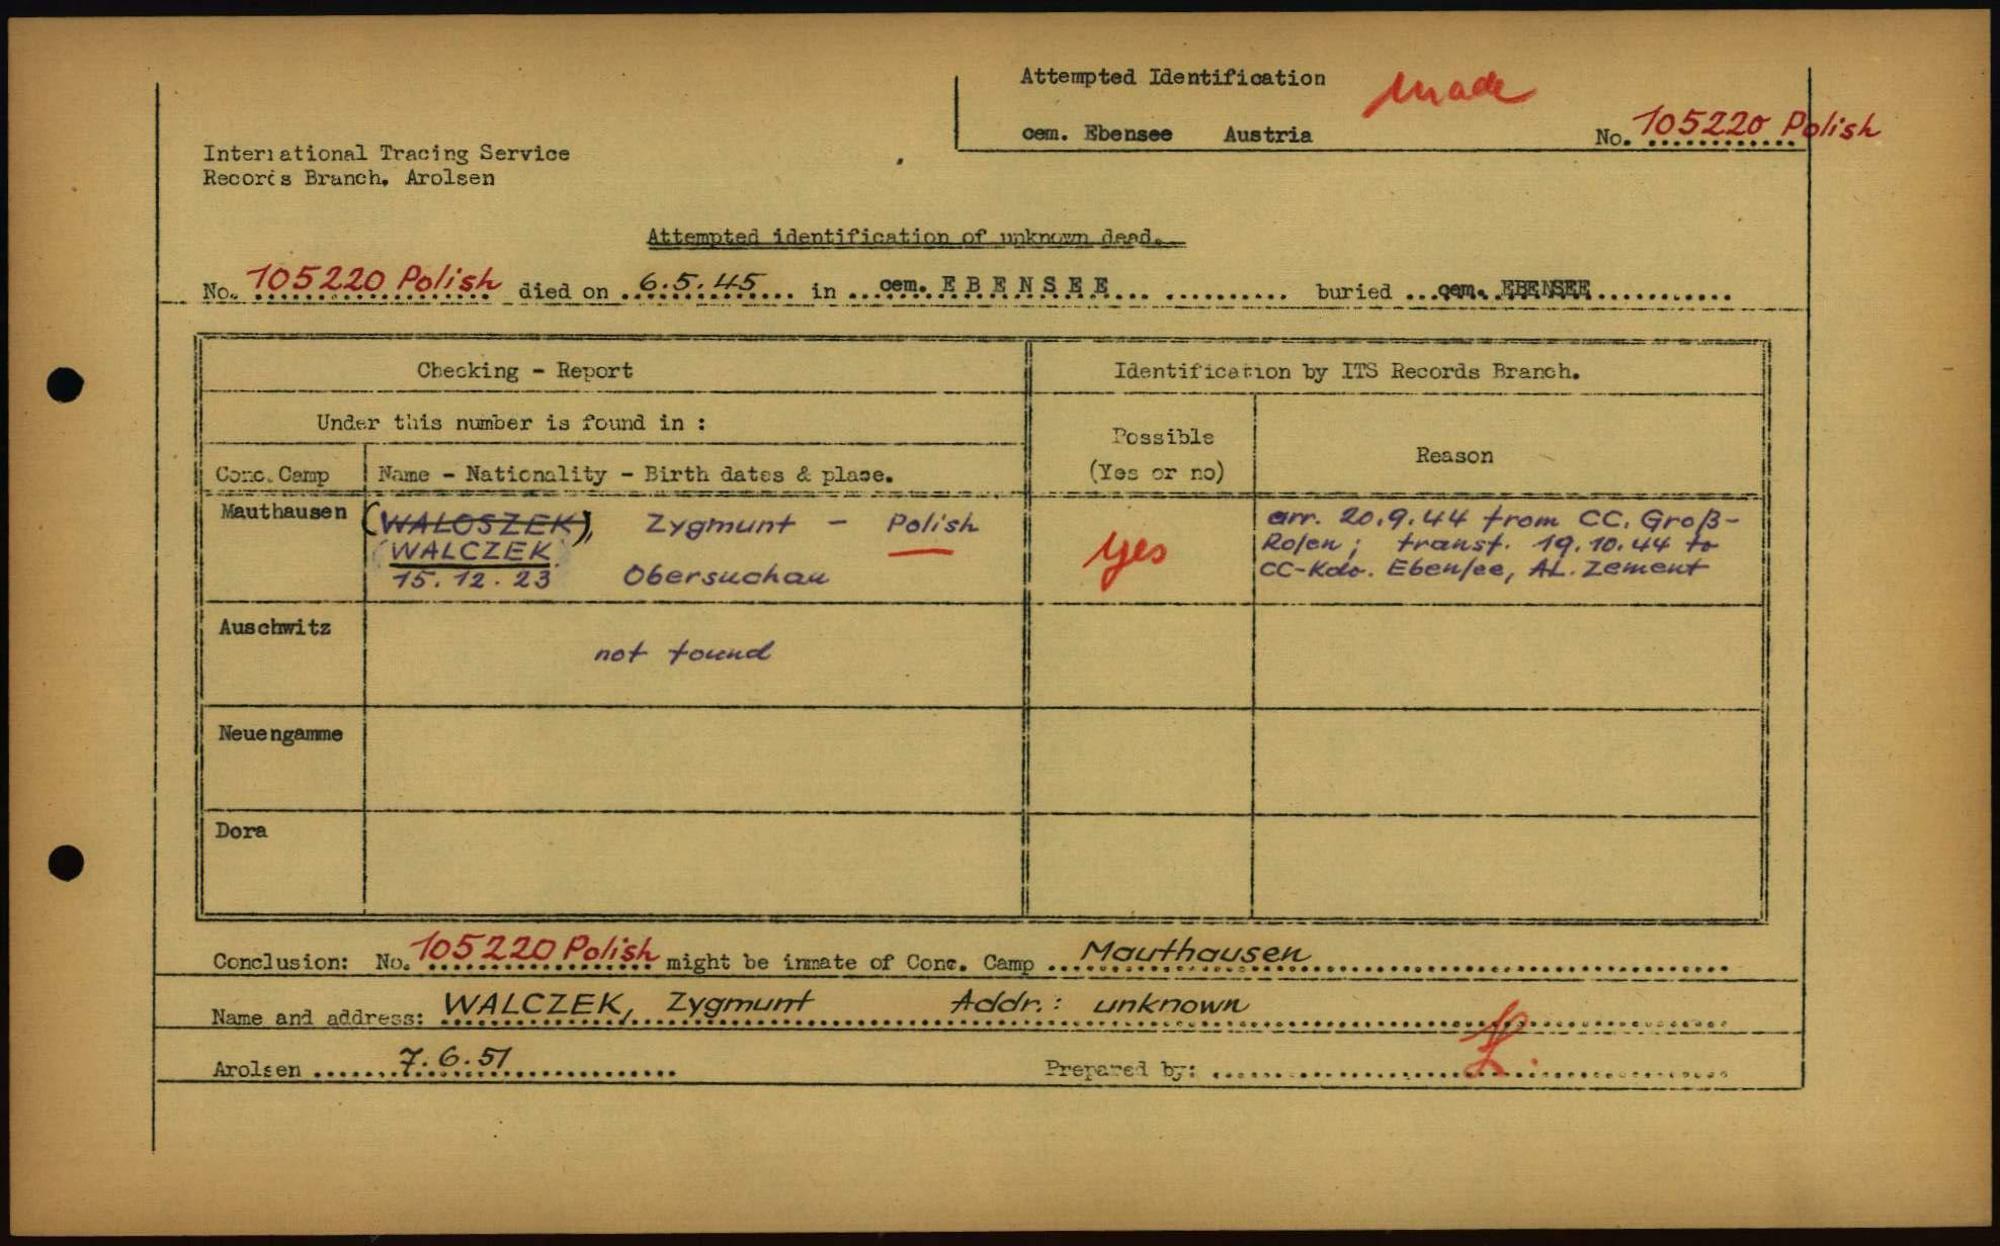 Attempted Identification made
cem. Ebensee Austria No. 105220 Polish
International Tracing Service
Records Branch, Arolsen
Attempted identification of unknown dead.
No. 105220 Polish died on 6.5.45 in cem. EBENSEE buried cem. EBENSEE
Checking - Report Identification by ITS Records Branch.
Under this number is found in :
Possible
(Yes or no) Reason
Conc. Camp Name - Nationality - Birth dates & place.
Mauthausen (WALOSZEK), Zygmunt - Polish
(WALCZEK)
15.12.23 Obersuchau
yes
arr. 20.9.44 from CC. Groß-
Rosen; transf. 19.10.44 to
CC-Kdo. Ebensee, AL. Zement
Auschwitz not found
Neuengamme
Dora
Conclusion: No. 105220 Polish might be inmate of Conc. Camp Mauthausen
Name and address: WALCZEK, Zygmunt Addr.: unknown
Arolsen 7.6.51 Prepared by: